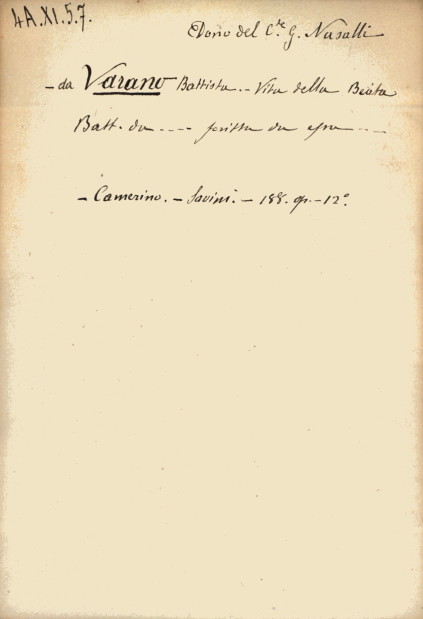 4A.XI.5.7.
Dono del C.te G. Nasalli
- da Varano Battista. - Vita della Beata
Batt. da - - - - scritta da essa - - -
- Camerino. - Savini. - 188. op. - 12°.